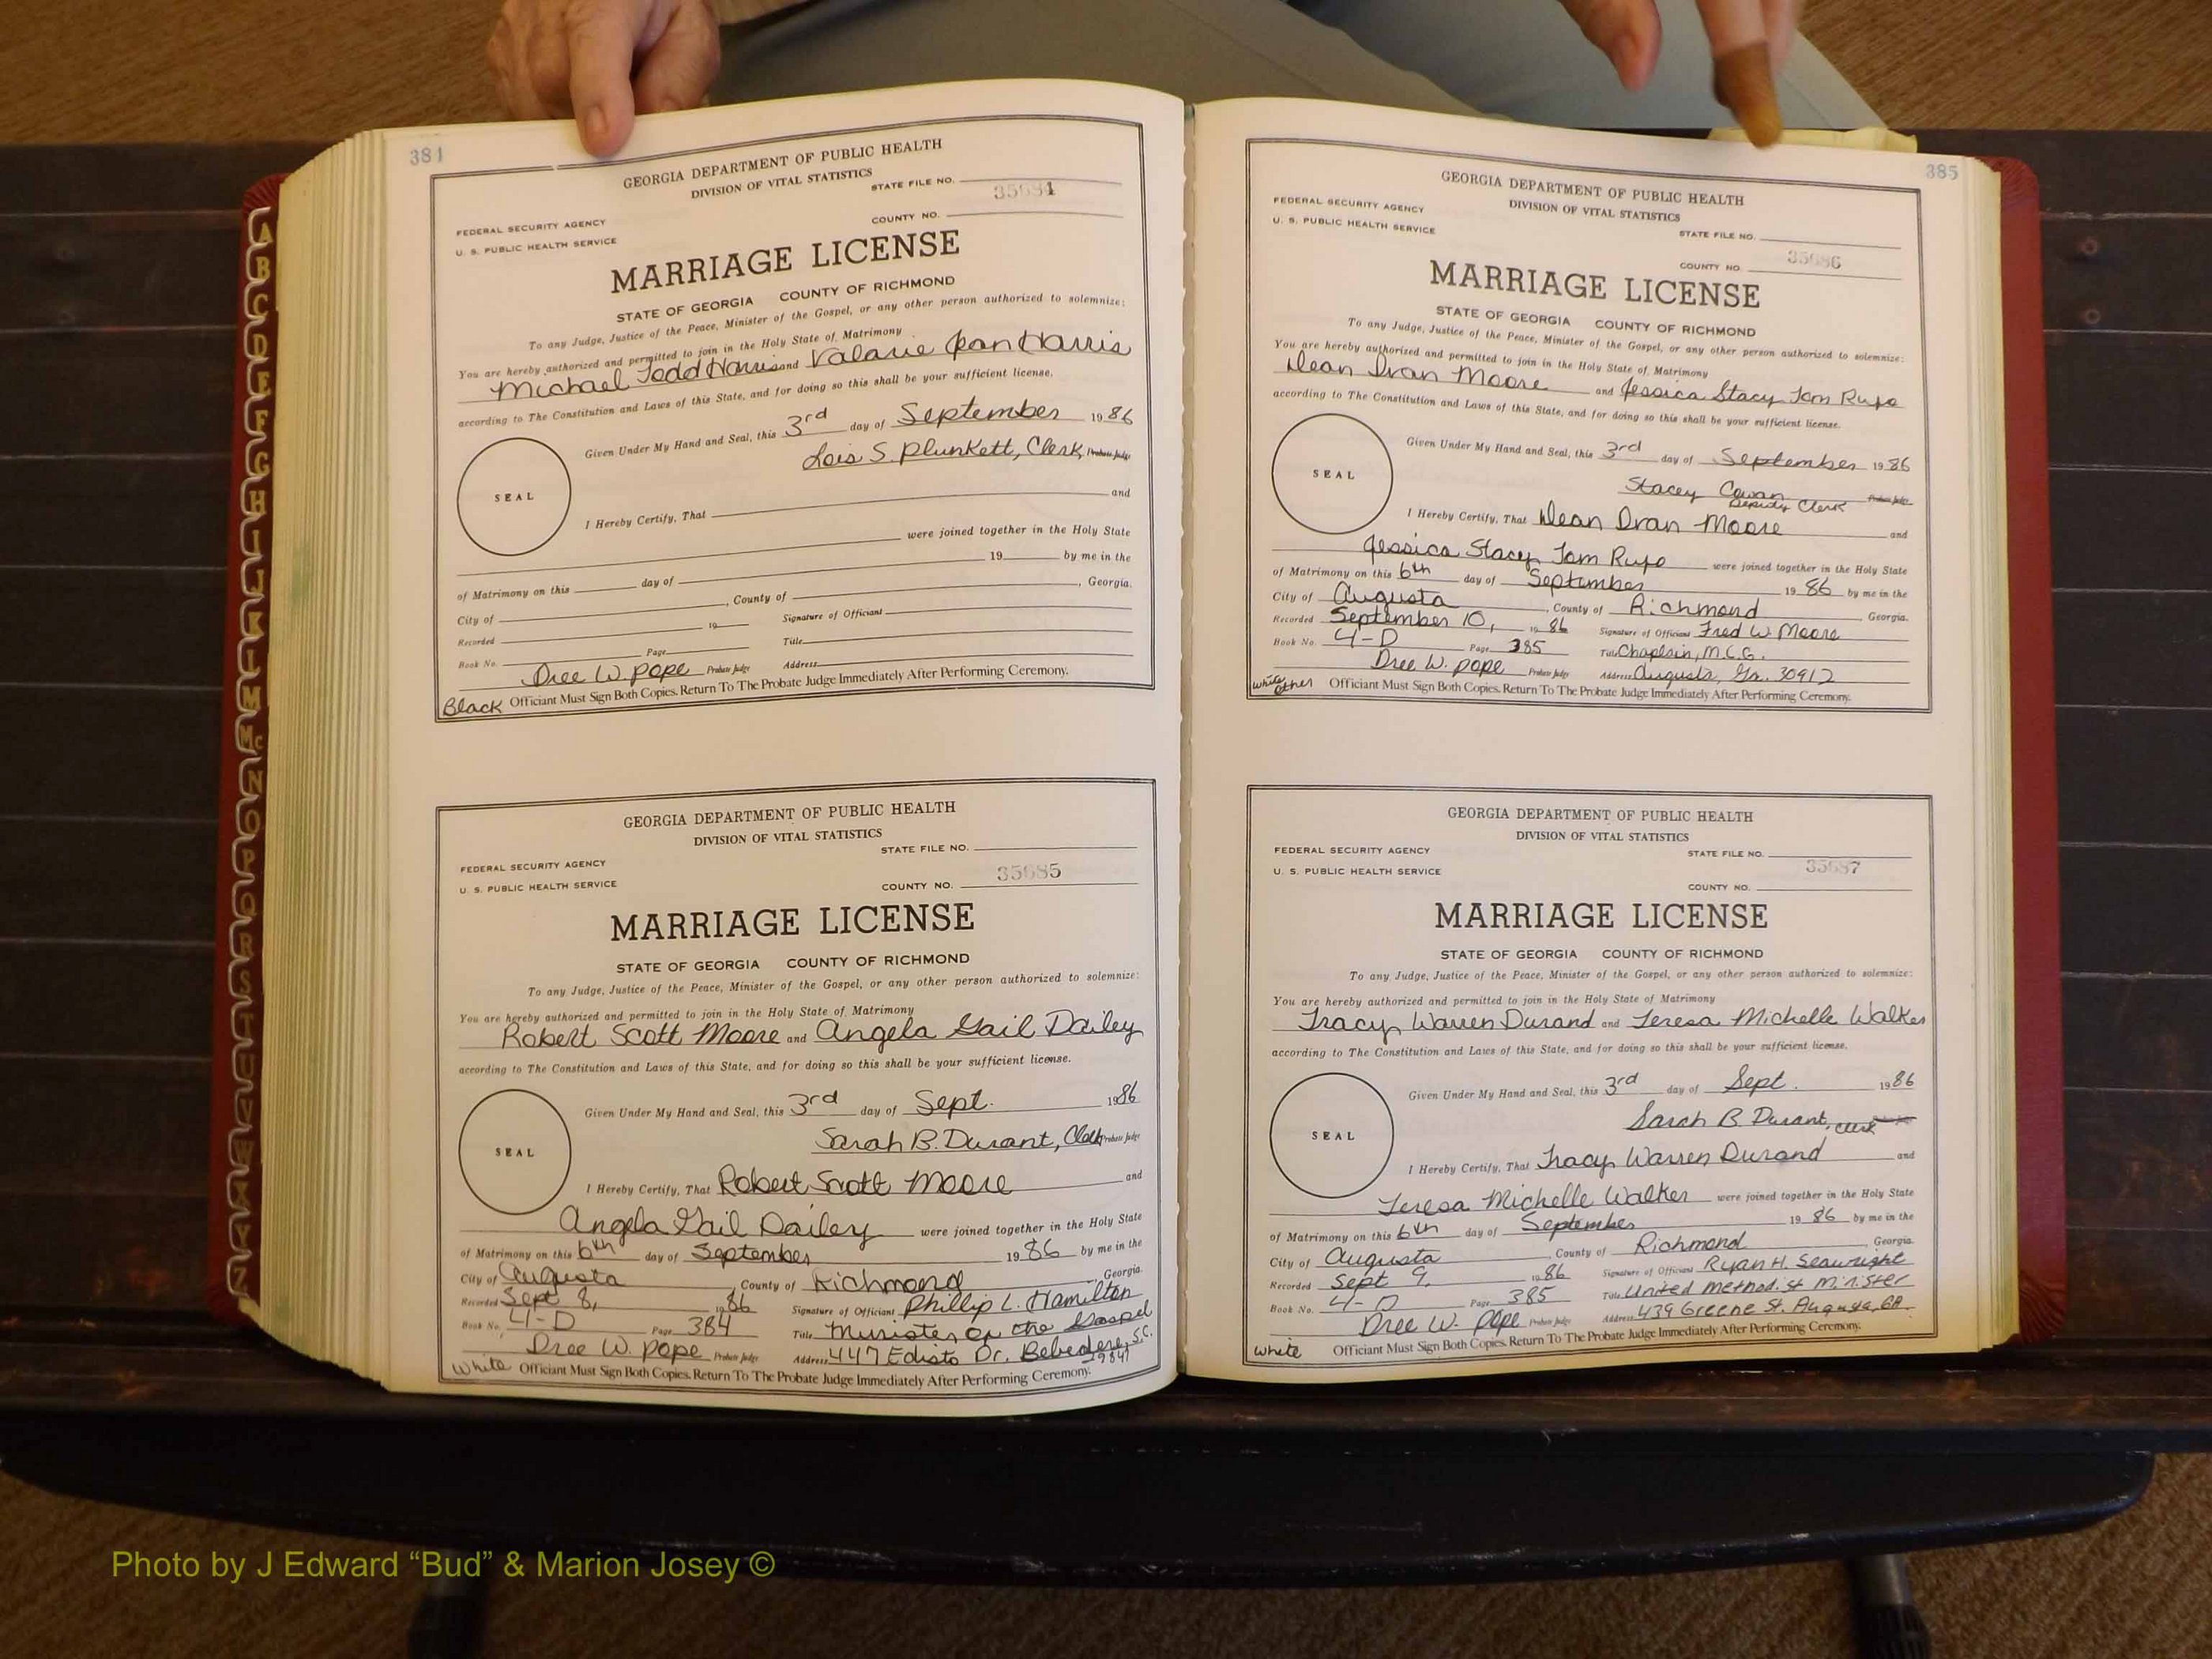 381
GEORGIA DEPARTMENT OF PUBLIC HEALTH
DIVISION OF VITAL STATISTICS
STATE FILE NO.
35684
FEDERAL SECURITY AGENCY
COUNTY NO.
U. S. PUBLIC HEALTH SERVICE
MARRIAGE LICENSE
STATE OF GEORGIA COUNTY OF RICHMOND
To any Judge, Justice of the Peace, Minister of the Gospel, or any other person authorized to solemnize:
You are hereby authorized and permitted to join in the Holy State of Matrimony
Michael Todd Harris and Valarie Jean Harris
according to The Constitution and Laws of this State, and for doing so this shall be your sufficient license.
Given Under My Hand and Seal, this 3rd day of September 1986
Lois S. Plunkett, Clerk, Probate Judge
SEAL
I Hereby Certify, That and
were joined together in the Holy State
of Matrimony on this day of 19 by me in the
City of , County of , Georgia.
Recorded 19 Signature of Officiant
Book No. Page Title
Dree W. Pope Probate Judge Address
Black Officiant Must Sign Both Copies. Return To The Probate Judge Immediately After Performing Ceremony.
GEORGIA DEPARTMENT OF PUBLIC HEALTH
DIVISION OF VITAL STATISTICS
STATE FILE NO.
FEDERAL SECURITY AGENCY
35685
U. S. PUBLIC HEALTH SERVICE COUNTY NO.
MARRIAGE LICENSE
STATE OF GEORGIA COUNTY OF RICHMOND
To any Judge, Justice of the Peace, Minister of the Gospel, or any other person authorized to solemnize:
You are hereby authorized and permitted to join in the Holy State of Matrimony
Robert Scott Moore and Angela Gail Dailey
according to The Constitution and Laws of this State, and for doing so this shall be your sufficient license.
Given Under My Hand and Seal, this 3rd day of Sept. 1986
Sarah B. Durant, Clerk Probate Judge
SEAL
I Hereby Certify, That Robert Scott Moore and
Angela Gail Dailey were joined together in the Holy State
of Matrimony on this 6th day of September 1986 by me in the
City of Augusta , County of Richmond , Georgia.
Recorded Sept 8, 1986 Signature of Officiant Phillip L. Hamilton
Book No. 4-D Page 384 Title Minister of the Gospel
Dree W. Pope Probate Judge Address 447 Edisto Dr. Belvedere, S.C.
29841
White Officiant Must Sign Both Copies. Return To The Probate Judge Immediately After Performing Ceremony.
385
GEORGIA DEPARTMENT OF PUBLIC HEALTH
DIVISION OF VITAL STATISTICS
FEDERAL SECURITY AGENCY
U. S. PUBLIC HEALTH SERVICE
STATE FILE NO.
35686
COUNTY NO.
MARRIAGE LICENSE
STATE OF GEORGIA COUNTY OF RICHMOND
To any Judge, Justice of the Peace, Minister of the Gospel, or any other person authorized to solemnize:
You are hereby authorized and permitted to join in the Holy State of Matrimony
Dean Ivan Moore and Jessica Stacy Tam Rufo
according to The Constitution and Laws of this State, and for doing so this shall be your sufficient license.
Given Under My Hand and Seal, this 3rd day of September 1986
Stacey Cowan Probate Judge
Deputy Clerk
SEAL
I Hereby Certify, That Dean Ivan Moore and
Jessica Stacy Tam Rufo were joined together in the Holy State
of Matrimony on this 6th day of September 1986 by me in the
City of Augusta , County of Richmond Georgia.
Recorded September 10, 1986 Signature of Officiant Fred W. Moore
Book No. 4-D Page 385 Title Chaplain, M.C.G.
Dree W. Pope Probate Judge Address Augusta, Ga. 30912
White other Officiant Must Sign Both Copies. Return To The Probate Judge Immediately After Performing Ceremony.
GEORGIA DEPARTMENT OF PUBLIC HEALTH
DIVISION OF VITAL STATISTICS
FEDERAL SECURITY AGENCY STATE FILE NO.
35687
U. S. PUBLIC HEALTH SERVICE COUNTY NO.
MARRIAGE LICENSE
STATE OF GEORGIA COUNTY OF RICHMOND
To any Judge, Justice of the Peace, Minister of the Gospel, or any other person authorized to solemnize:
You are hereby authorized and permitted to join in the Holy State of Matrimony
Tracy Warren Durand and Teresa Michelle Walker
according to The Constitution and Laws of this State, and for doing so this shall be your sufficient license.
Given Under My Hand and Seal, this 3rd day of Sept. 1986
Sarah B. Durant, Clerk
SEAL
I Hereby Certify, That Tracy Warren Durand and
Teresa Michelle Walker were joined together in the Holy State
of Matrimony on this 6th day of September 1986 by me in the
City of Augusta , County of Richmond , Georgia.
Recorded Sept 9, 1986 Signature of Officiant Ryan H. Seawright
Book No. 4-D Page 385 Title United Methodist Minister
Dree W. Pope Probate Judge Address 439 Greene St. Augusta, GA
White Officiant Must Sign Both Copies. Return To The Probate Judge Immediately After Performing Ceremony.
A
B
C
D
E
F
G
H
I
J
K
L
M
Mc
N
O
P
Q
R
S
T
U
V
W
X
Y
Z
Photo by J Edward “Bud” & Marion Josey ©